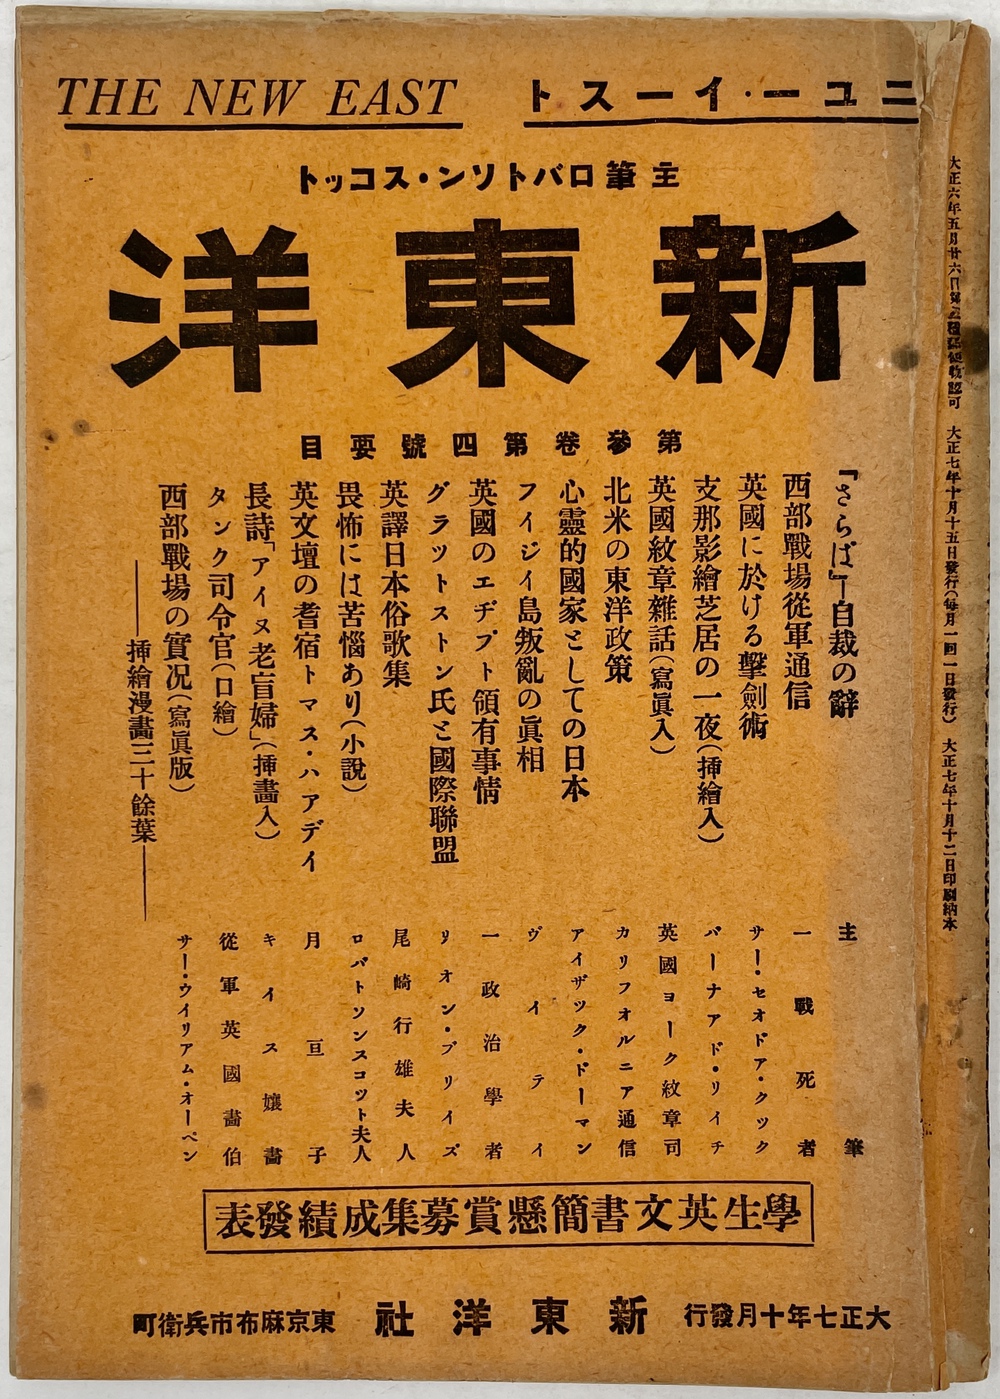 THE NEW EAST
ニユー・イースト
主筆ロバトソン・スコット
新東洋
第參卷第四號要目
「さらば」―自裁の辭
主筆
西部戰場從軍通信
一戰死者
英國に於ける擊劍術
サー・セオドア・クック
支那影繪芝居の一夜(挿繪入)
バーナアド・リイチ
英國紋章雜話(寫眞入)
英國ヨーク紋章司
北米の東洋政策
カリフオルニア通信
心靈的國家としての日本
アイザツク・ドーマン
フイジイ島叛亂の眞相
ヴイテイ
英國のエヂプト領有事情
一政治學者
グラツトストン氏と國際聯盟
リオン・ブリイズ
英譯日本俗歌集
尾崎行雄夫人
畏怖には苦惱あり(小說)
ロバトソンスコツト夫人
英文壇の耆宿トマス・ハアデイ
月亘子
長詩「アイヌ老盲婦」(挿畵入)
キイス孃畵
タンク司令官(口繪)
從軍英國畵伯
西部戰場の實況(寫眞版)
サー・ウイリアム・オーペン
―挿繪漫畵三十餘葉―
學生英文書簡懸賞募集成績發表
大正七年十月發行
新東洋社
東京麻布市兵衛町
大正六年五月廿六日第三種郵便物認可 大正七年十月十五日發行(每月一回一日發行) 大正七年十月十二日印刷納本